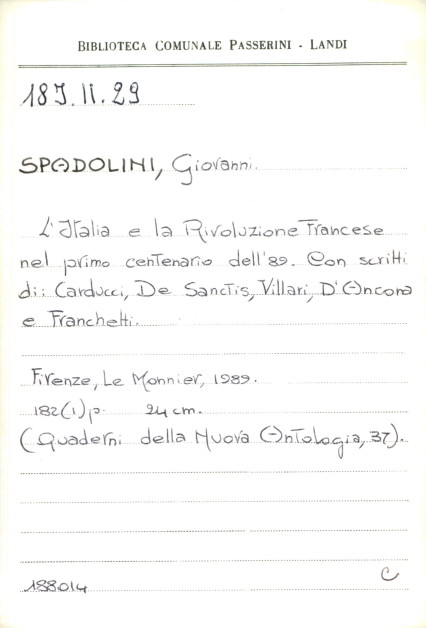 BIBLIOTECA COMUNALE PASSERINI - LANDI
18J.II.29
SPADOLINI, Giovanni.
L'Italia e la Rivoluzione Francese
nel primo centenario dell'89. Con scritti
di: Carducci, De Sanctis, Villari, D'Ancona
e Franchetti.
Firenze, Le Monnier, 1989.
182(1)p. 24 cm.
(Quaderni della Nuova Antologia, 37).
188014
C